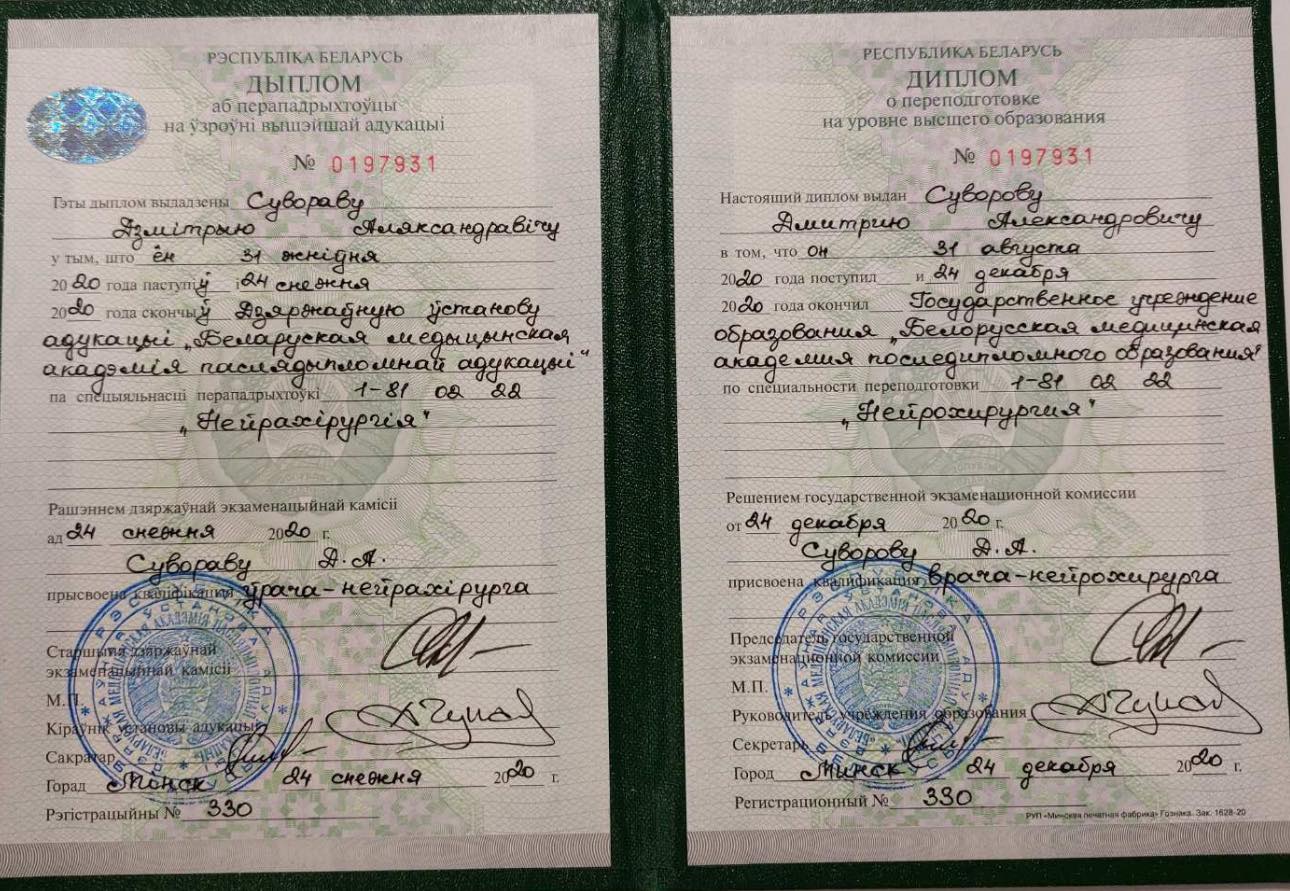 РЭСПУБЛІКА БЕЛАРУСЬ
ДЫПЛОМ
аб перападрыхтоўцы
на ўзроўні вышэйшай адукацыі
№ 0197931
Гэты дыплом выдадзены Сувораву
Дзмітрыю Аляксандравічу
у тым, што ён 31 жніўня
2020 года паступіў і 24 снежня
2020 года скончыў Дзяржаўную ўстанову
адукацыі „Беларуская медыцынская
акадэмія паслядыпломнай адукацыі“
па спецыяльнасці перападрыхтоўкі 1-81 02 22
„Нейрахірургія“
Рашэннем дзяржаўнай экзаменацыйнай камісіі
ад 24 снежня 2020 г.
Сувораву Д.А.
прысвоена кваліфікацыя ўрача-нейрахірурга
Старшыня дзяржаўнай
экзаменацыйнай камісіі
М.П.
Кіраўнік установы адукацыі
Сакратар
Горад Мінск 24 снежня 2020 г.
Рэгістрацыйны № 330
РЕСПУБЛИКА БЕЛАРУСЬ
ДИПЛОМ
о переподготовке
на уровне высшего образования
№ 0197931
Настоящий диплом выдан Суворову
Дмитрию Александровичу
в том, что он 31 августа
2020 года поступил и 24 декабря
2020 года окончил Государственное учреждение
образования „Белорусская медицинская
академия последипломного образования“
по специальности переподготовки 1-81 02 22
„Нейрохирургия“
Решением государственной экзаменационной комиссии
от 24 декабря 2020 г.
Суворову Д.А.
присвоена квалификация врача-нейрохирурга
Председатель государственной
экзаменационной комиссии
М.П.
Руководитель учреждения образования
Секретарь
Город Минск 24 декабря 2020 г.
Регистрационный № 330
РУП «Минская печатная фабрика» Гознака. Зак. 1628-20